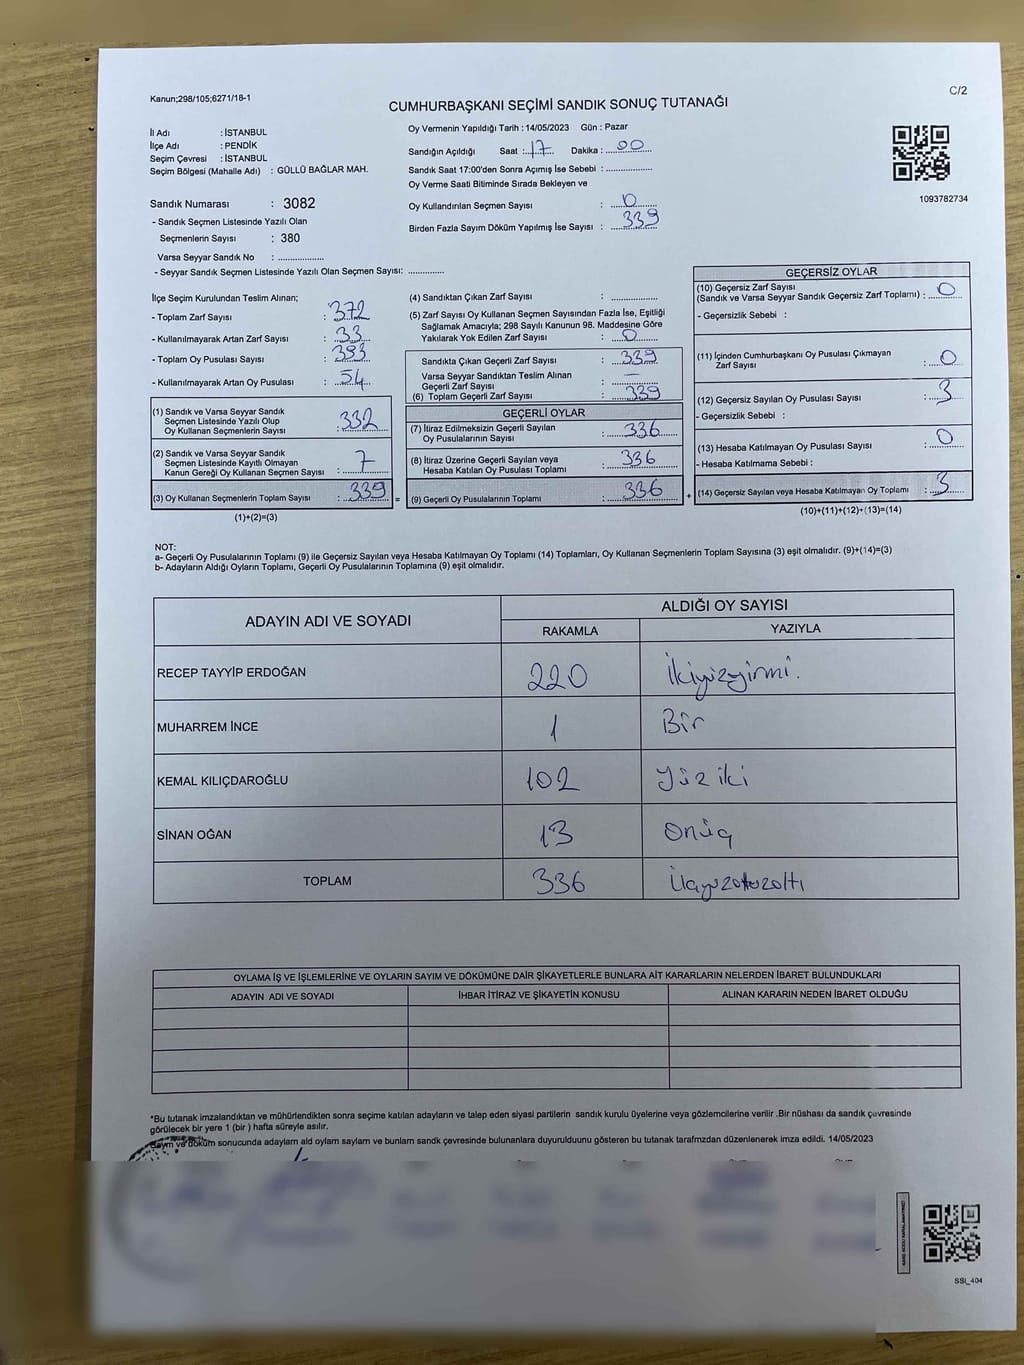 Kanun;298/105;6271/18-1
C/2
CUMHURBAŞKANI SEÇİMİ SANDIK SONUÇ TUTANAĞI
İl Adı : İSTANBUL
İlçe Adı : PENDİK
Seçim Çevresi : İSTANBUL
Seçim Bölgesi (Mahalle Adı) : GÜLLÜ BAĞLAR MAH.
Sandık Numarası : 3082
- Sandık Seçmen Listesinde Yazılı Olan
Seçmenlerin Sayısı : 380
Varsa Seyyar Sandık No : ....................
- Seyyar Sandık Seçmen Listesinde Yazılı Olan Seçmen Sayısı: ...............
Oy Vermenin Yapıldığı Tarih : 14/05/2023 Gün : Pazar
Sandığın Açıldığı Saat : 17 Dakika : 00
Sandık Saat 17:00'den Sonra Açımış İse Sebebi : ....................
Oy Verme Saati Bitiminde Sırada Bekleyen ve
Oy Kullandırılan Seçmen Sayısı : 0
Birden Fazla Sayım Döküm Yapılmış İse Sayısı : 339
1093782734
İlçe Seçim Kurulundan Teslim Alınan;
- Toplam Zarf Sayısı : 372
- Kullanılmayarak Artan Zarf Sayısı : 33
- Toplam Oy Pusulası Sayısı : 393
- Kullanılmayarak Artan Oy Pusulası : 54
(1) Sandık ve Varsa Seyyar Sandık
Seçmen Listesinde Yazılı Olup
Oy Kullanan Seçmenlerin Sayısı : 332
(2) Sandık ve Varsa Seyyar Sandık
Seçmen Listesinde Kayıtlı Olmayan
Kanun Gereği Oy Kullanan Seçmen Sayısı : 7
(3) Oy Kullanan Seçmenlerin Toplam Sayısı : 339 =
(1)+(2)=(3)
(4) Sandıktan Çıkan Zarf Sayısı : ....................
(5) Zarf Sayısı Oy Kullanan Seçmen Sayısından Fazla İse, Eşitliği
Sağlamak Amacıyla; 298 Sayılı Kanunun 98. Maddesine Göre
Yakılarak Yok Edilen Zarf Sayısı : 0
Sandıkta Çıkan Geçerli Zarf Sayısı : 339
Varsa Seyyar Sandıktan Teslim Alınan
Geçerli Zarf Sayısı : —
(6) Toplam Geçerli Zarf Sayısı : 339
GEÇERLİ OYLAR
(7) İtiraz Edilmeksizin Geçerli Sayılan
Oy Pusulalarının Sayısı : 336
(8) İtiraz Üzerine Geçerli Sayılan veya
Hesaba Katılan Oy Pusulası Toplamı : 336
(9) Geçerli Oy Pusulalarının Toplamı : 336 +
GEÇERSİZ OYLAR
(10) Geçersiz Zarf Sayısı
(Sandık ve Varsa Seyyar Sandık Geçersiz Zarf Toplamı) : 0
- Geçersizlik Sebebi :
(11) İçinden Cumhurbaşkanı Oy Pusulası Çıkmayan
Zarf Sayısı : 0
(12) Geçersiz Sayılan Oy Pusulası Sayısı : 3
- Geçersizlik Sebebi :
(13) Hesaba Katılmayan Oy Pusulası Sayısı : 0
- Hesaba Katılmama Sebebi :
(14) Geçersiz Sayılan veya Hesaba Katılmayan Oy Toplamı : 3
(10)+(11)+(12)+(13)=(14)
NOT:
a- Geçerli Oy Pusulalarının Toplamı (9) ile Geçersiz Sayılan veya Hesaba Katılmayan Oy Toplamı (14) Toplamları, Oy Kullanan Seçmenlerin Toplam Sayısına (3) eşit olmalıdır. (9)+(14)=(3)
b- Adayların Aldığı Oyların Toplamı, Geçerli Oy Pusulalarının Toplamına (9) eşit olmalıdır.
ADAYIN ADI VE SOYADI
ALDIĞI OY SAYISI
RAKAMLA YAZIYLA
RECEP TAYYİP ERDOĞAN 220 İkiyüzyirmi.
MUHARREM İNCE 1 Bir
KEMAL KILIÇDAROĞLU 102 Yüz iki
SİNAN OĞAN 13 Onüç
TOPLAM 336 Üçyüzotuzaltı
OYLAMA İŞ VE İŞLEMLERİNE VE OYLARIN SAYIM VE DÖKÜMÜNE DAİR ŞİKAYETLERLE BUNLARA AİT KARARLARIN NELERDEN İBARET BULUNDUKLARI
ADAYIN ADI VE SOYADI İHBAR İTİRAZ VE ŞİKAYETİN KONUSU ALINAN KARARIN NEDEN İBARET OLDUĞU
*Bu tutanak imzalandıktan ve mühürlendikten sonra seçime katılan adayların ve talep eden siyasi partilerin sandık kurulu üyelerine veya gözlemcilerine verilir .Bir nüshası da sandık çevresinde
görülecek bir yere 1 (bir ) hafta süreyle asılır.
Saym ve döküm sonucunda adaylarn ald oylarn saylarn ve bunlarn sandk çevresinde bulunanlara duyurulduunu gösteren bu tutanak tarafmzdan düzenlenerek imza edildi. 14/05/2023
SSI_404